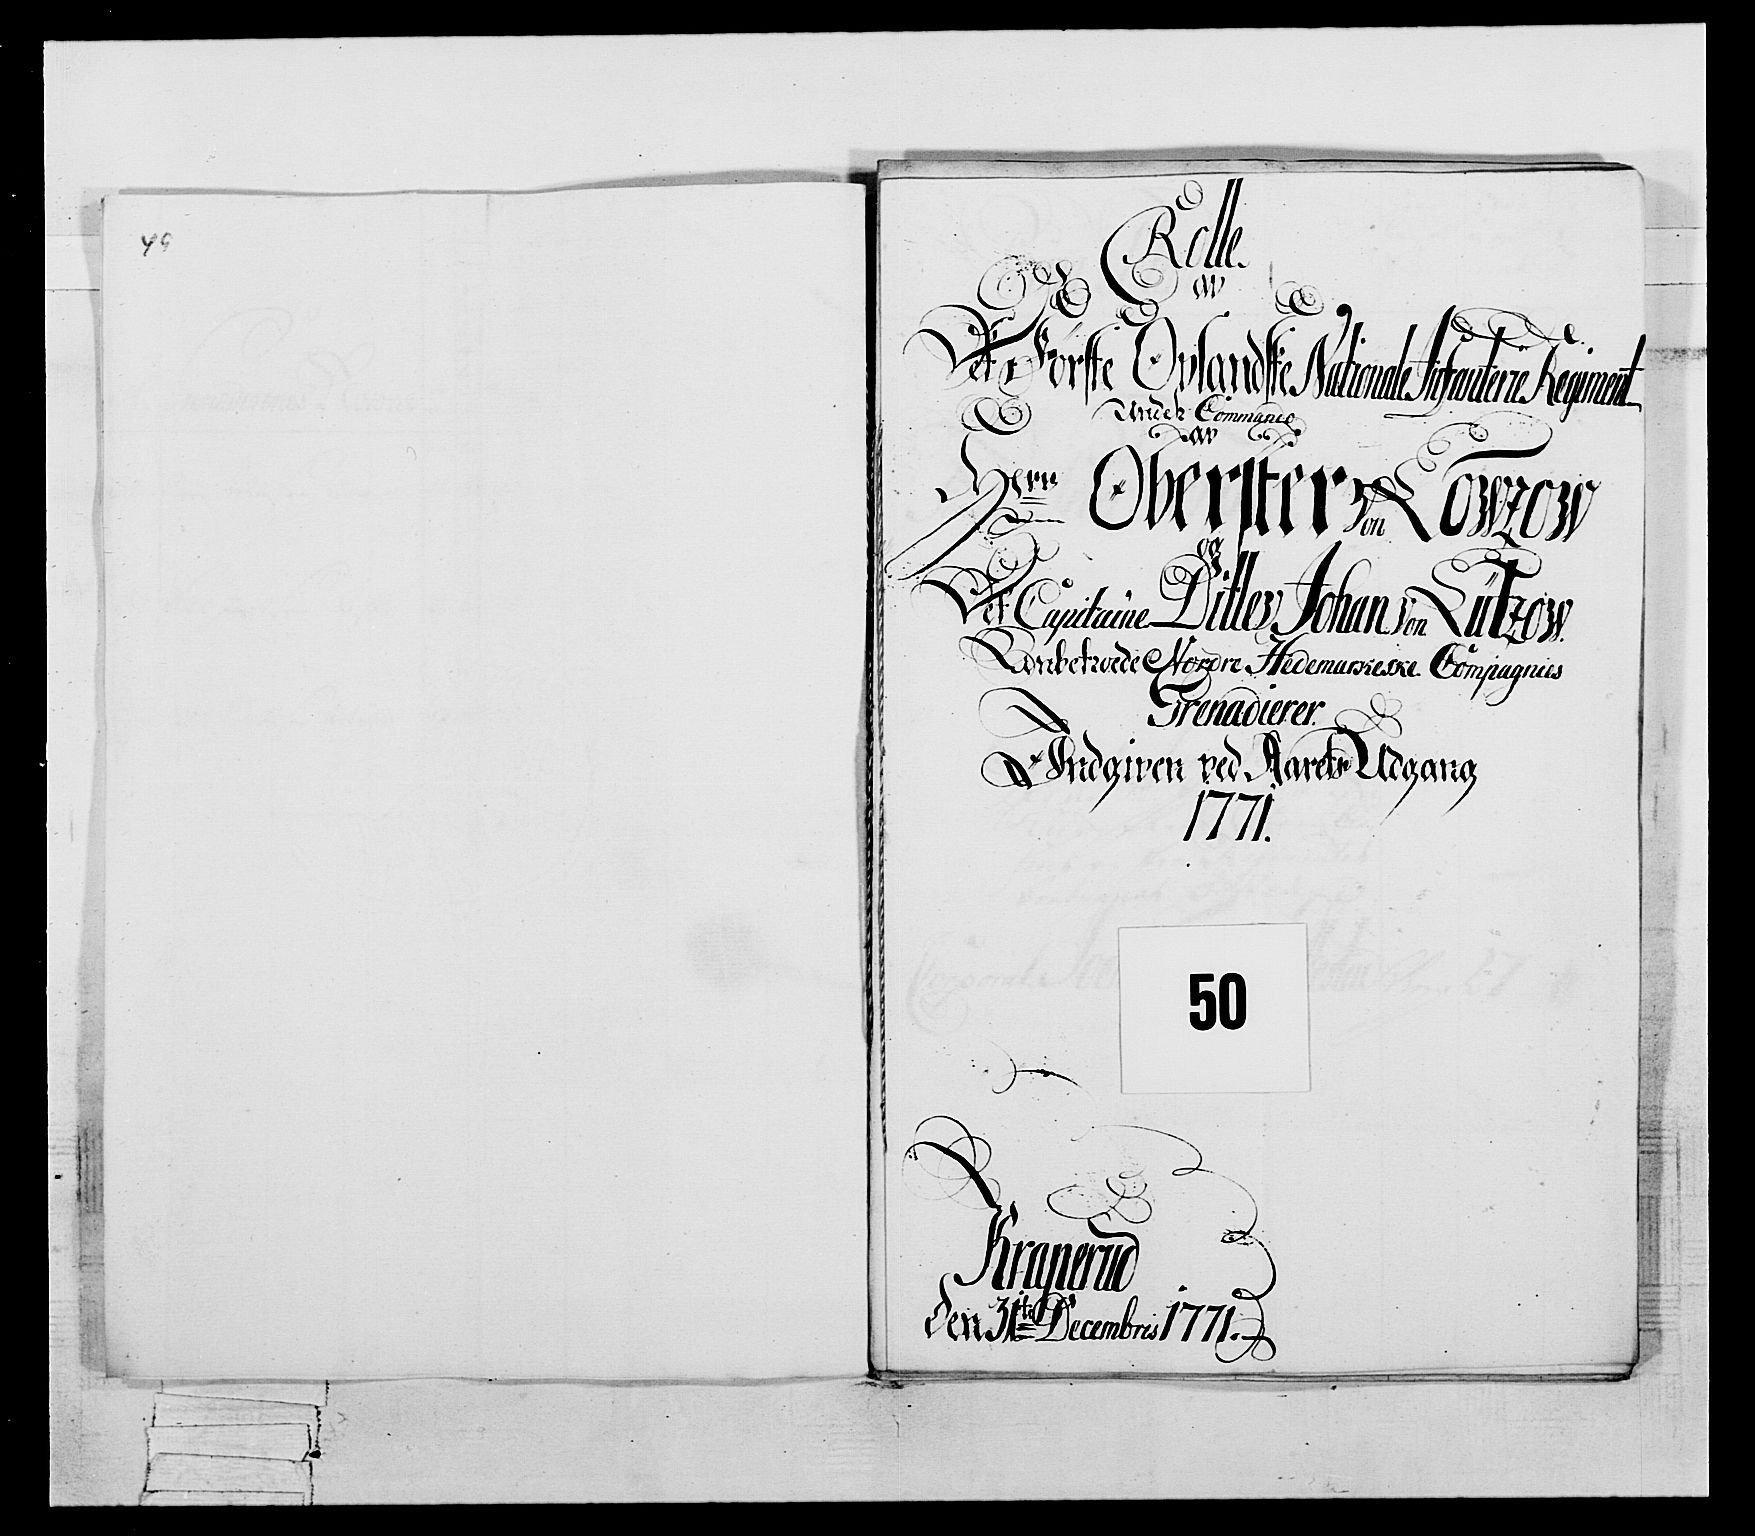 49
Rolle
av
Det Førſte Oplandſke Nationale Infanterie Regiment
Under Commando
av
Herr Oberſter von Lowzow
og
Det Capitaine Ditlev Johan von Lützow
Anbetroede Nordre Hedemarkeske Compagnies
Grenadierer
Indgiven ved Aarets Udgang
1771.
50
Kraperud
den 31te Decembris 1771.